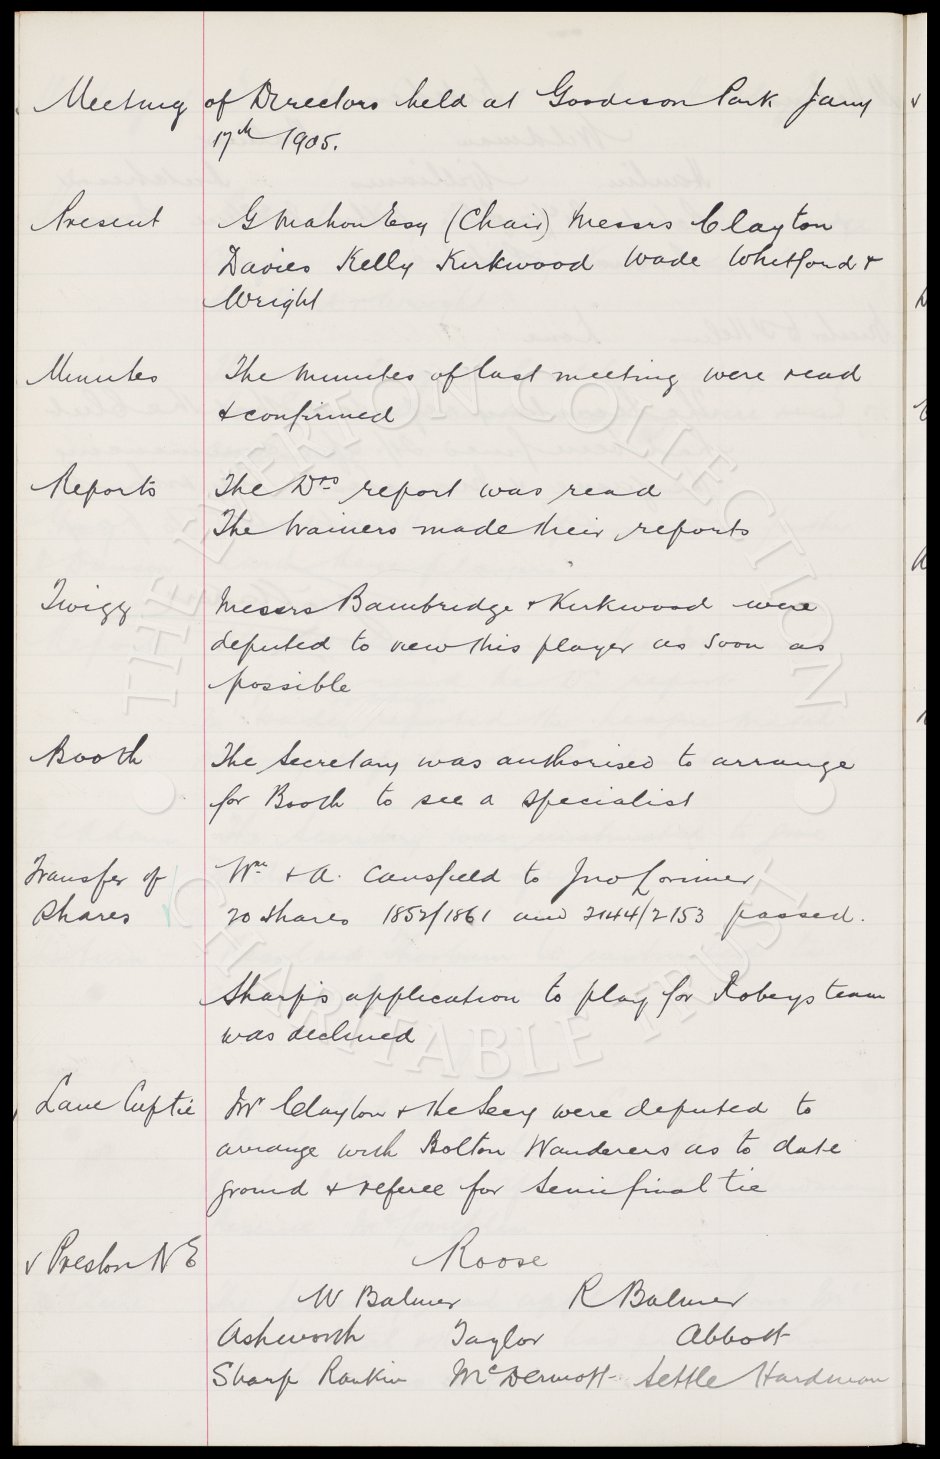 Meeting of Directors held at Goodison Park Jany
17th 1905.
Present G Mahon Esq (Chair) Messrs Clayton
Davies Kelly Kirkwood Wade Whitford &
Wright
Minutes The minutes of last meeting were read
& confirmed
Reports The Drs report was read
The trainers made their reports
Twigg Messrs Bainbridge & Kirkwood were
deputed to view this player as soon as
possible
Booth The Secretary was authorised to arrange
for Booth to see a specialist
Transfer of Wm & A. Cansfield to Jno Lorimer
Shares 20 shares 1852/1861 and 2144/2153 passed.
Sharp's application to play for Robeys team
was declined
Lanc Cup tie Mr Clayton & the Secy were deputed to
arrange with Bolton Wanderers as to date
ground & referee for Semi final tie
v Preston N E Roose
W Balmer R Balmer
Ashworth Taylor Abbott
Sharp Rankin McDermott Settle Hardman
THE EVERTON COLLECTION
CHARITABLE TRUST